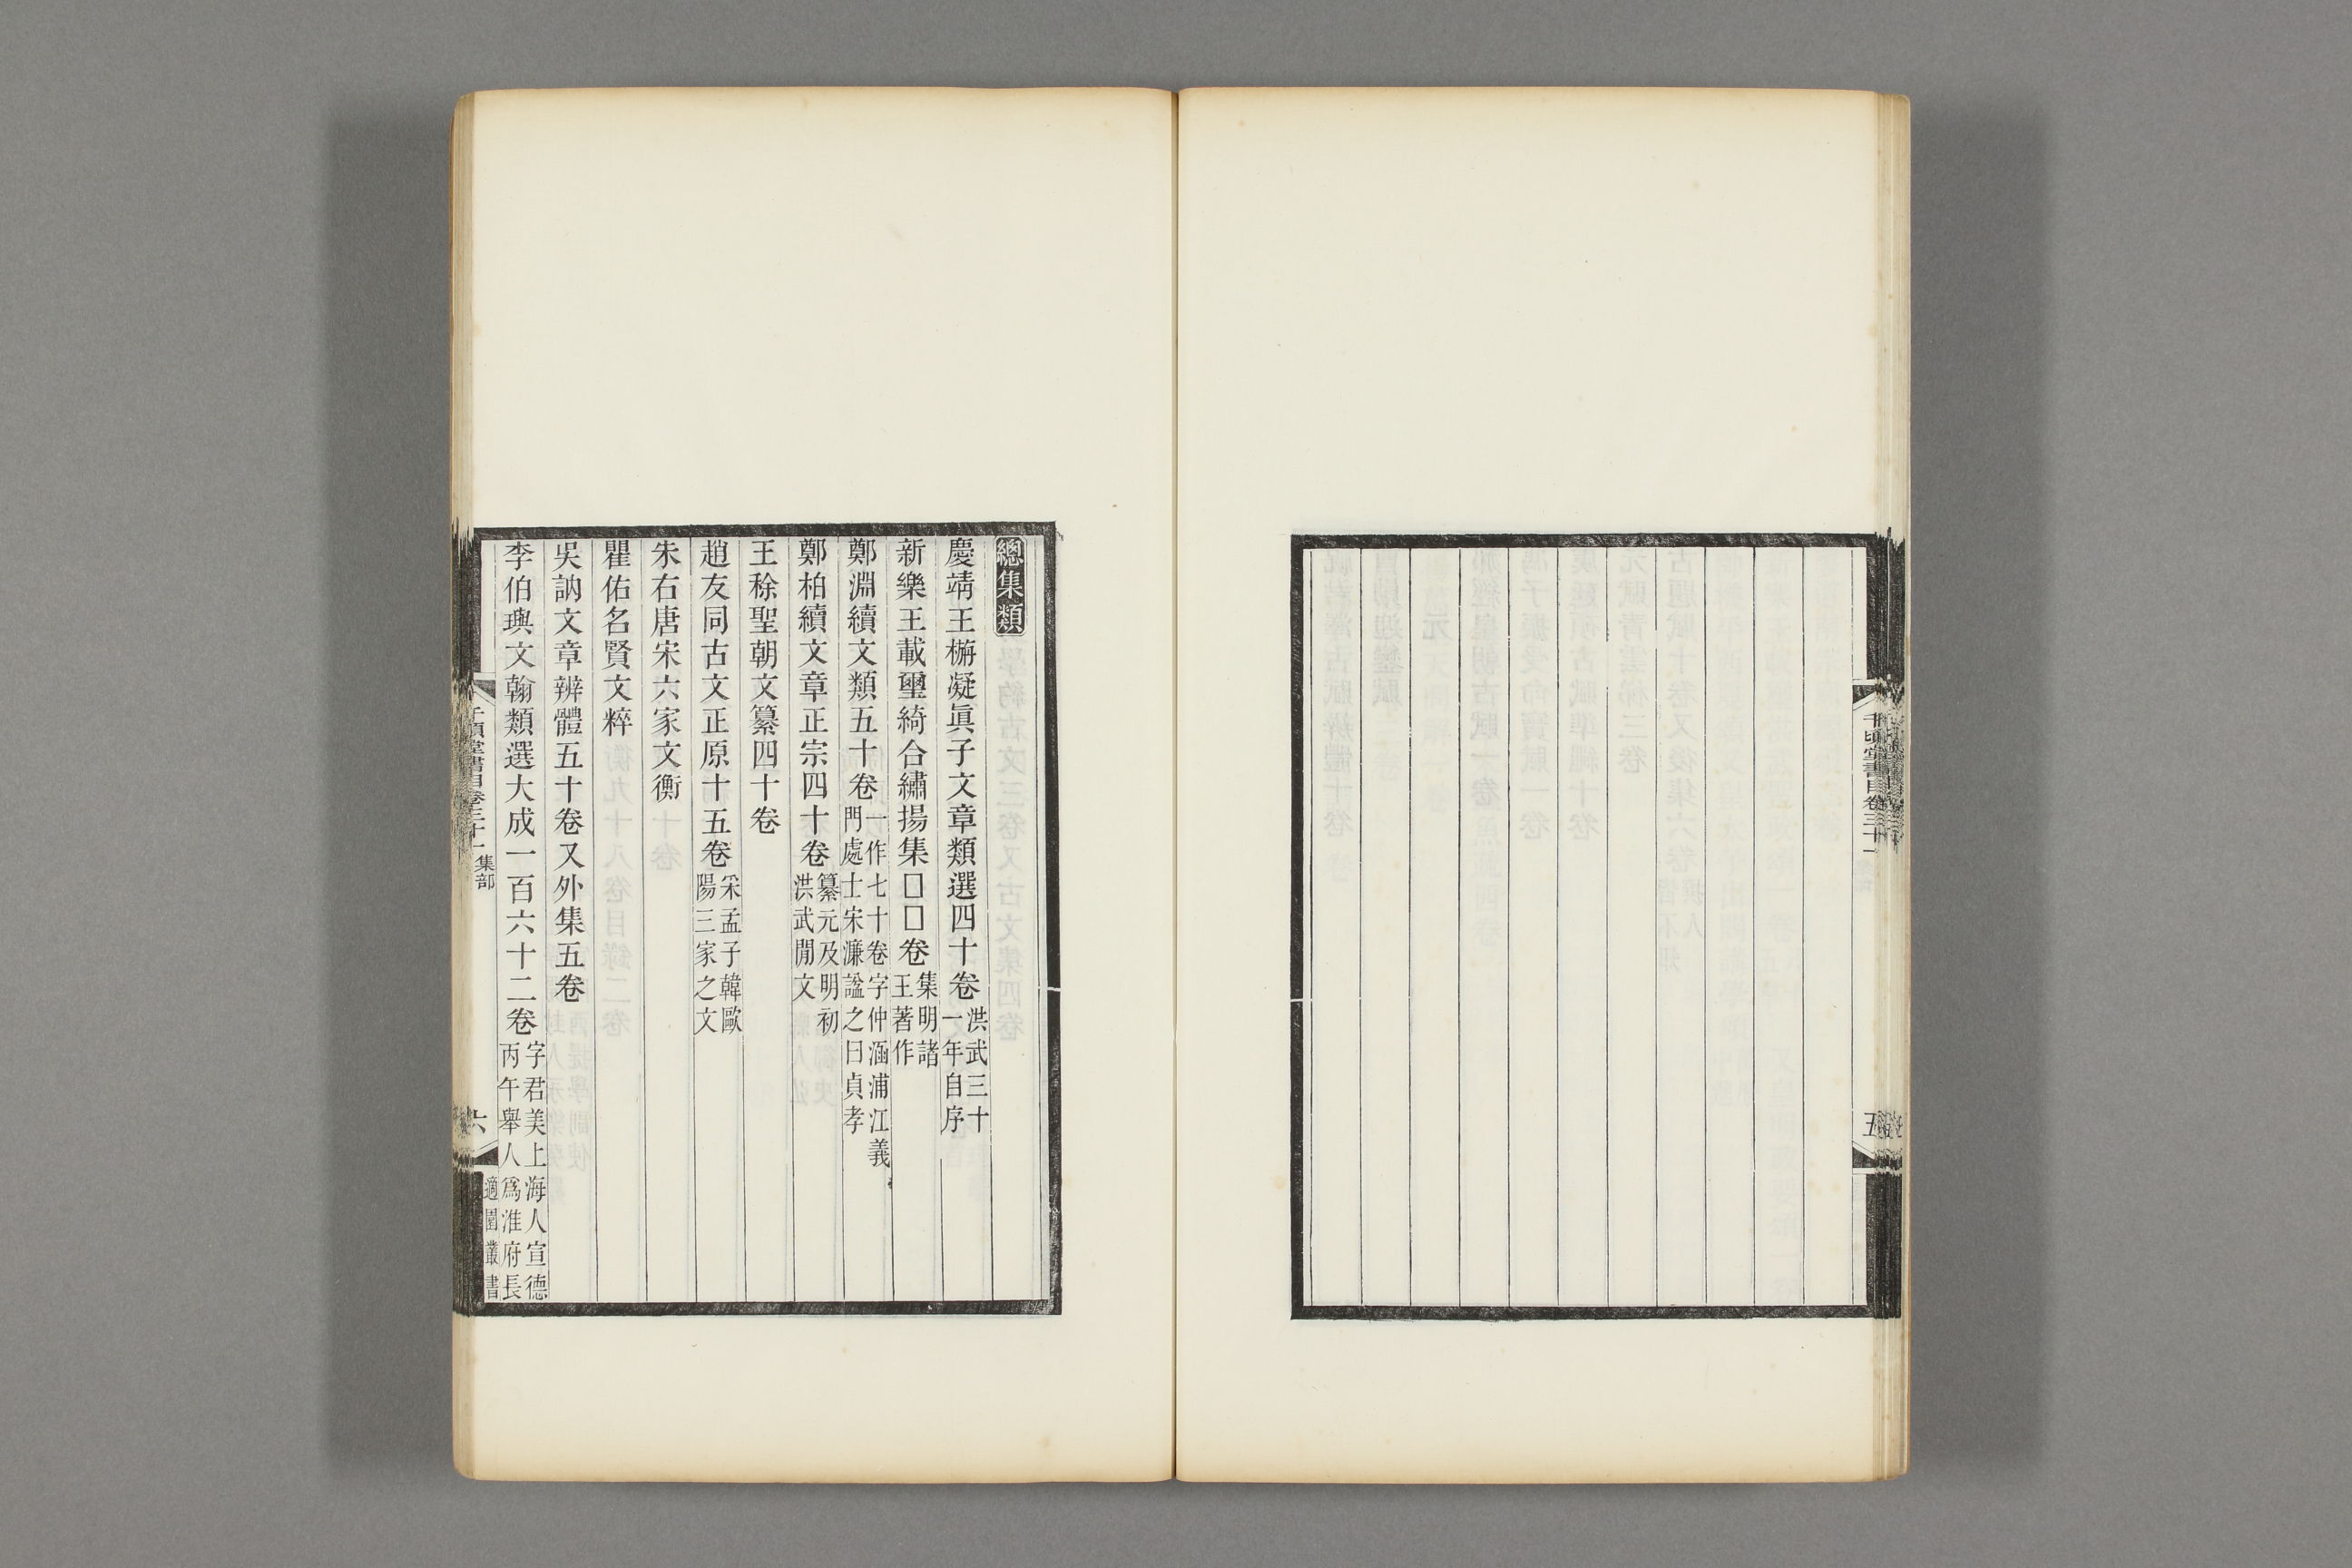 千頃堂書目卷三十一
五
總集類
慶靖王㮵凝眞子文章類選四十卷洪武三十一年自序
新樂王載璽綺合繡揚集□□卷集明諸王著作
鄭淵續文類五十卷一作七十卷字仲涵浦江義門處士宋濂諡之曰貞孝
鄭柏續文章正宗四十卷纂元及明初洪武閒文
王稌聖朝文纂四十卷
趙友同古文正原十五卷采孟子韓歐陽三家之文
朱右唐宋六家文衡
瞿佑名賢文粹
吳訥文章辨體五十卷又外集五卷
李伯璵文翰類選大成一百六十二卷字君美上海人宣德丙午舉人爲淮府長
千頃堂書目卷三十一 集部
六
適園叢書